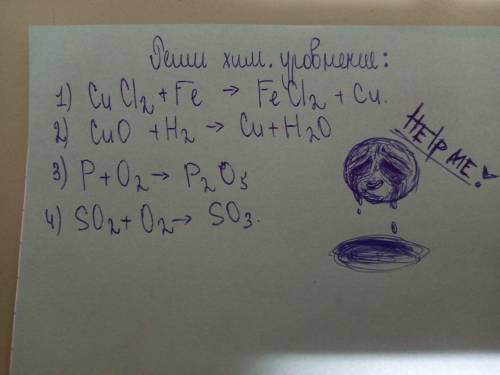 Реши хим. уровнение:
1) CuCl2 + Fe → FeCl2 + Cu.
2) CuO + H2 → Cu + H2O
3) P + O2 → P2O5
4) SO2 + O2 → SO3.
HELP ME!